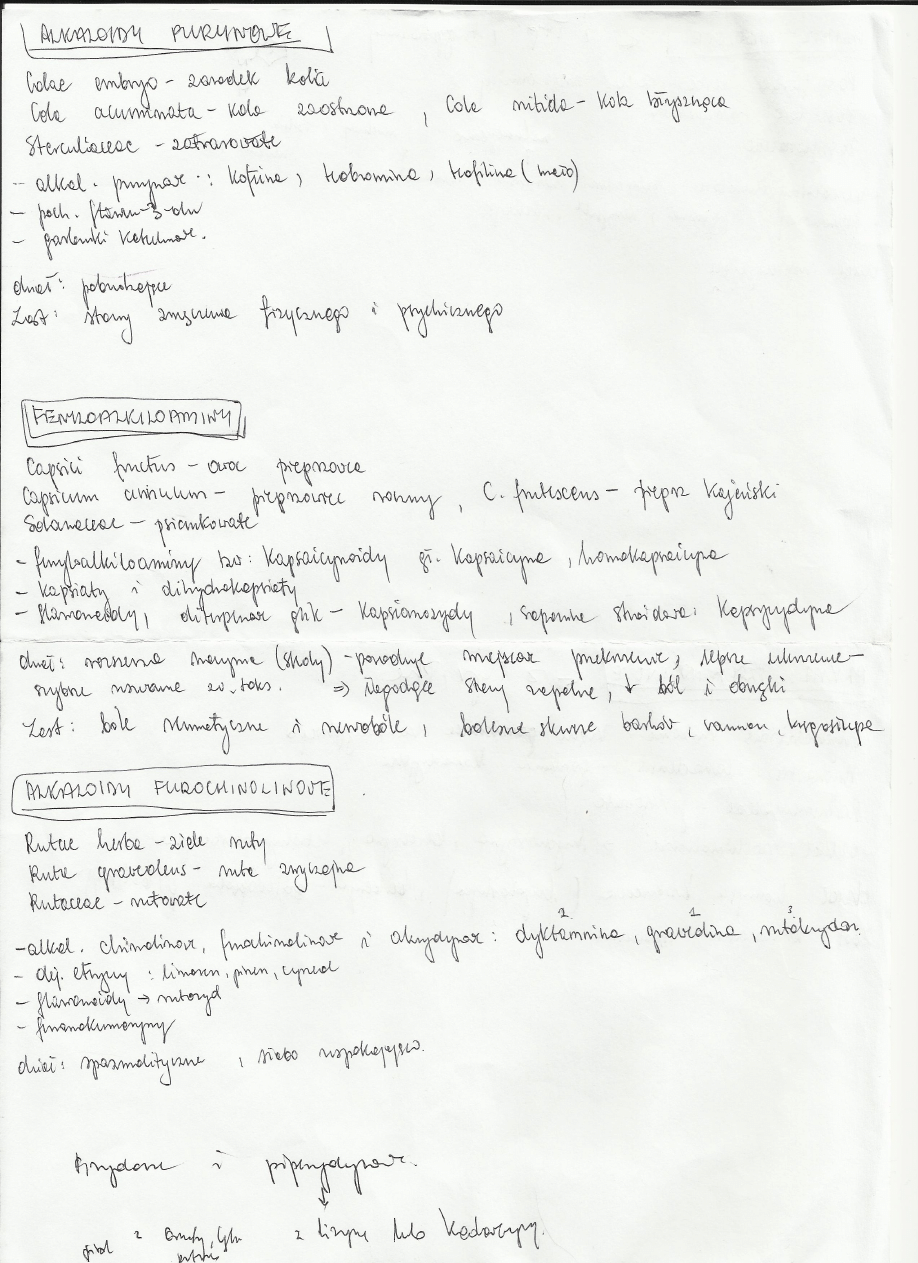 ALKALOIDY PURYNOWE
Colae embryo - zarodek kola
Cola acuminata - kola zaostrzona, Cola nitida - Kola błyszcząca
Sterculiaceae - zatwarowate
- alkal. purynow.: kofeina, teobromina, teofilina (mało)
- poch. flawan-3-olu
- garbniki katechinowe.
dział: pobudzające
Zast: stany zmęczenia fizycznego i psychicznego
FENYLOALKILOAMINY
Capsici fructus - owoc pieprzowca
Capsicum annuum - pieprzowiec roczny, C. frutescens - pieprz Kajeński
Solanaceae - psiankowate
- fenyloalkiloaminy tzw: Kapsaicynoidy gł. Kapsaicyna, homokapsaicyna
- kapsiaty i dihydrokapsiaty
- flawonoidy, diterpenowe glik - Kapsianozydy, saponina steroidowa: Kapsycydyna
dział: rozszerza naczynia (skóry) - powoduje miejscowe przekrwienie, lepsze ukrwienie -
szybsze usuwanie zw. toks. => łagodzące stany zapalne, ↓ ból i obrzęki
Zast: bóle reumatyczne i nerwobóle, bolesne skurcze barków, ramion, kręgosłupa
ALKALOIDY FUROCHINOLINOWE
Rutae herba - ziele ruty
Ruta graveolens - ruta zwyczajna
Rutaceae - rutowate
- alkal. chinolinowe, furochinolinowe i akrydynowe: dyktamnina, grawedina, rutakrydon
2 1 3
- olej. eteryczny: limonen, pinen, cyneol
- flawonoidy → rutozyd
- furanokumaryny
dział: spazmolityczne, słabo uspokajająco.
i piperydynowe.
↓
z z lizyny lub Kadaweryny.